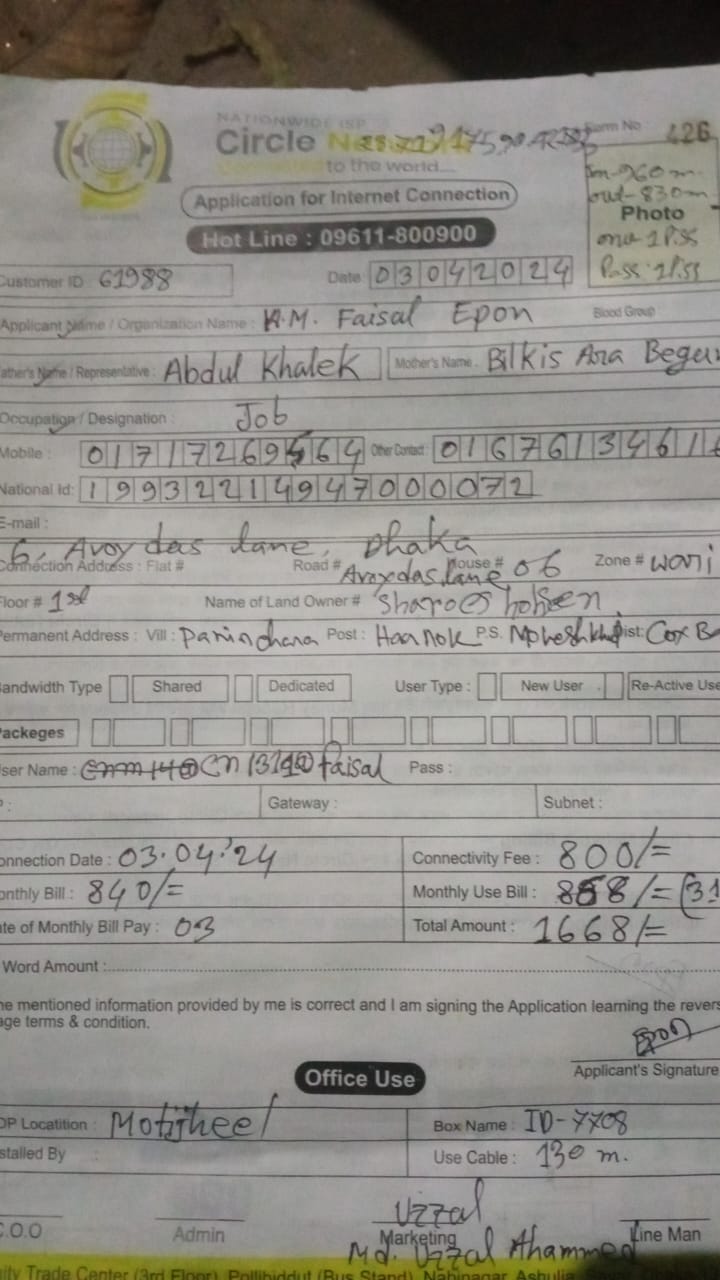 NATIONWIDE ISP
Circle
Form No 426
to the world....
Application for Internet Connection
Hot Line : 09611-800900
out-830m
Photo
Customer ID : 61988
Date: 03042024
Applicant Name / Organization Name : K.M. Faisal Epon Blood Group
ather's Name / Representative : Abdul Khalek Mother's Name : Bilkis Ara Begum
Occupation / Designation : Job
Mobile : 01717269564 Other Contact : 0167613461
National Id: 19932214947000072
E-mail :
6, Avoy das lane, Dhaka
Connection Address : Flat # Road # Avoydas lane House # 06 Zone # wari
Floor # 1st Name of Land Owner #
Permanent Address : Vill : Post : P.S. ist: Cox Ba
andwidth Type Shared Dedicated User Type : New User Re-Active Use
ackeges
ser Name : faisal Pass :
: Gateway : Subnet :
onnection Date : 03.04.'24 Connectivity Fee : 800/=
onthly Bill : 840/= Monthly Use Bill : 868/= (31
te of Monthly Bill Pay : 03 Total Amount : 1668/=
Word Amount :
he mentioned information provided by me is correct and I am signing the Application learning the revers
age terms & condition.
Epon
Applicant's Signature
Office Use
OP Locatition : Motijheel Box Name : ID-7708
stalled By : Use Cable : 130 m.
Uzzal
C.O.O Admin Marketing Line Man
Md. Uzzal Ahammed
ity Trade Center (3rd Floor), Pollibiddut (Bus Stand), Nabinagar, Ashuli